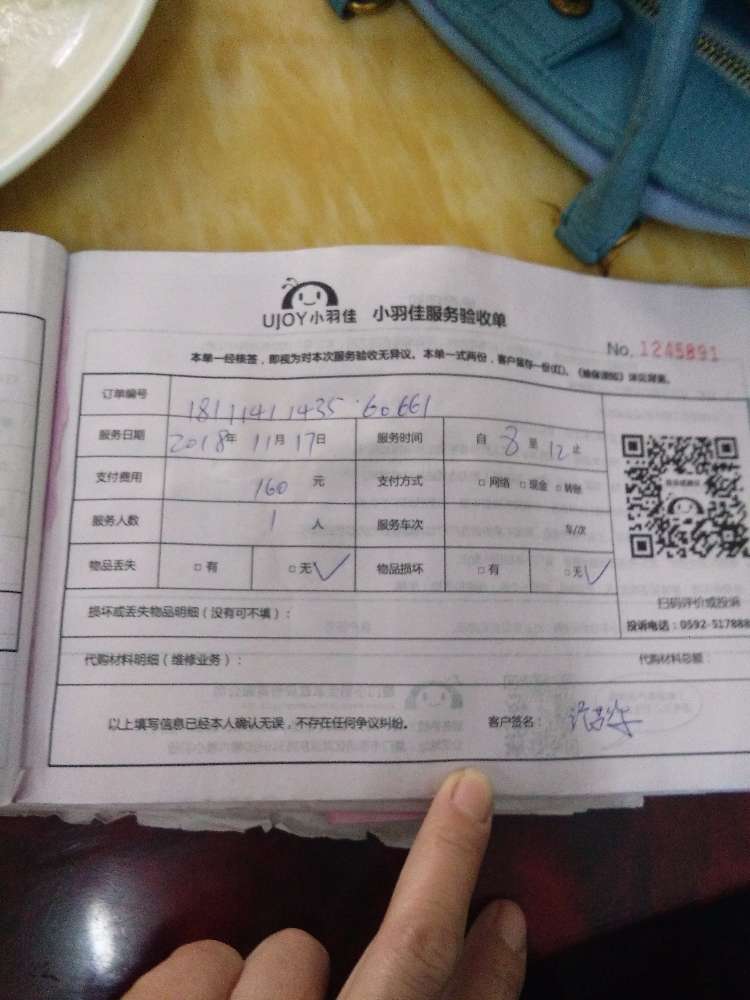 UJOY小羽佳 小羽佳服务验收单
No. 1245891
本单一经核签，即视为对本次服务验收无异议。本单一式两份，客户留存一份(红)。《维保须知》详见背面。
订单编号 18111411435 60661
服务日期 2018年 11月 17日 服务时间 自 8 至 12 止
支付费用 160 元 支付方式 □网络 □现金 □转账
服务人数 1 人 服务车次 车/次
物品丢失 □有 □无√ 物品损坏 □有 □无√
扫码评价或投诉
损坏或丢失物品明细（没有可不填）：
投诉电话：0592-517888
代购材料明细（维修业务）： 代购材料总额：
以上填写信息已经本人确认无误，不存在任何争议纠纷。 客户签名：